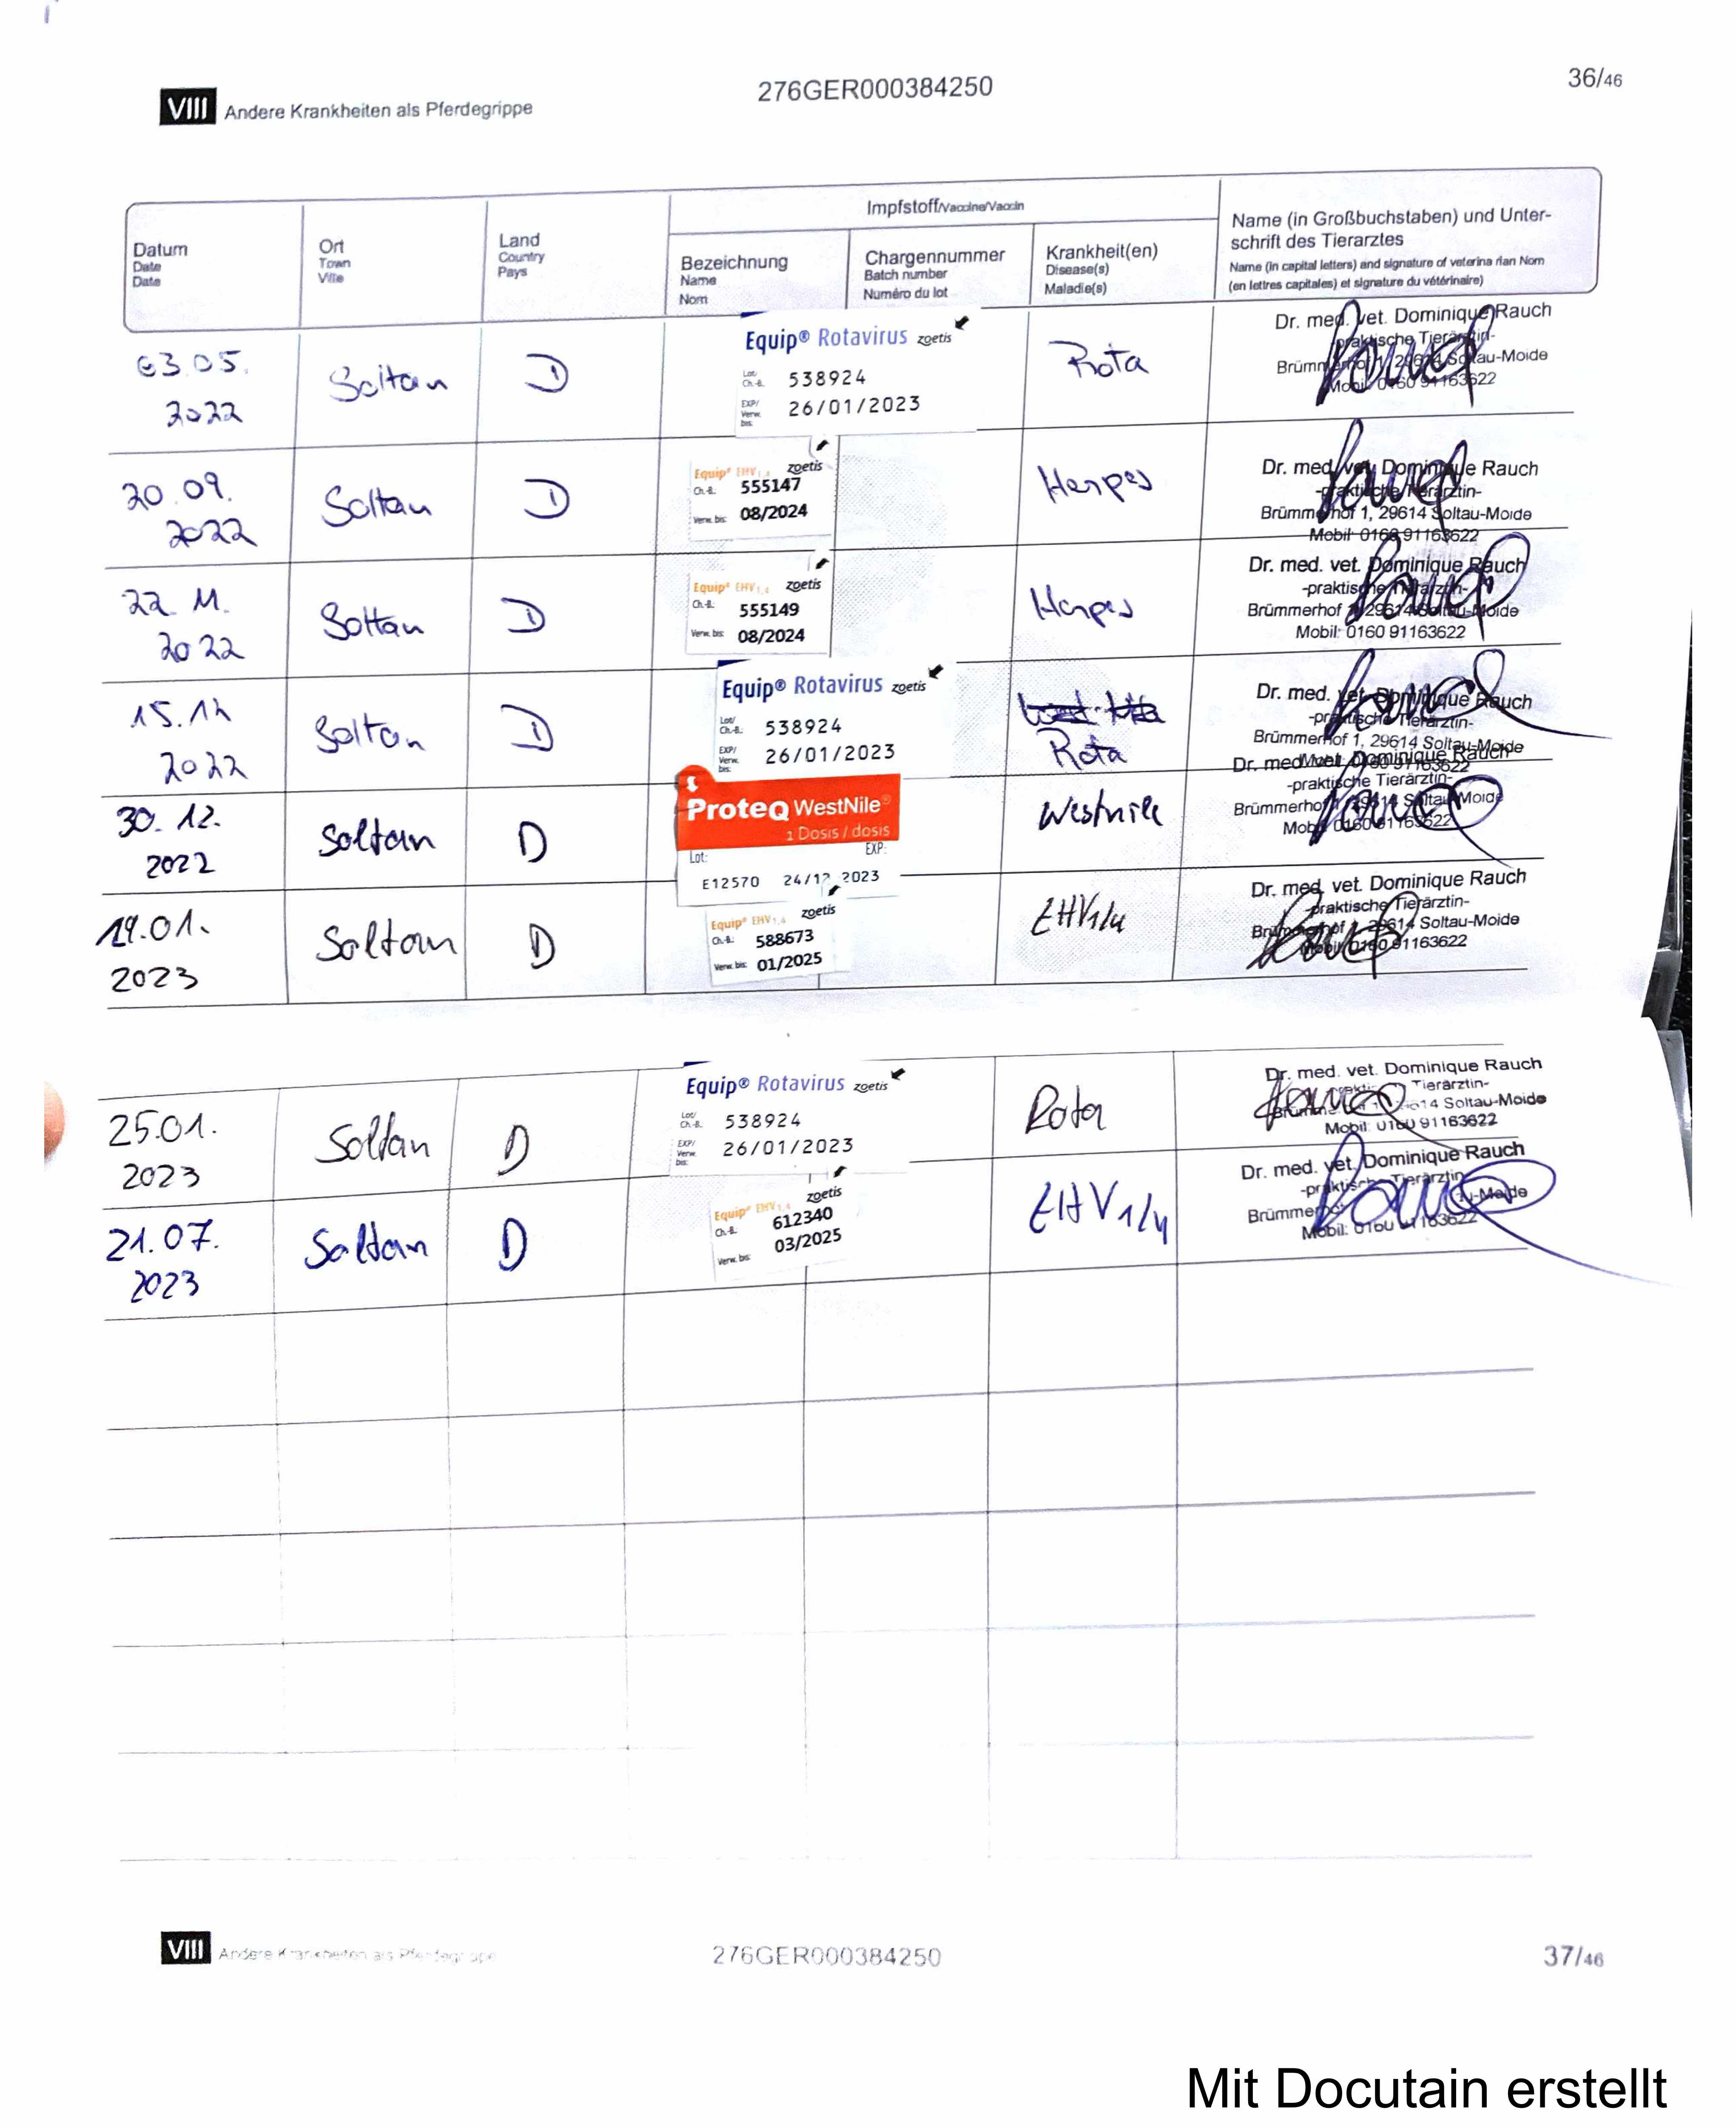 276GER000384250
36/46
VIII Andere Krankheiten als Pferdegrippe
Impfstoff/Vaccine/Vaccin
Datum
Date
Date
Ort
Town
Ville
Land
Country
Pays
Bezeichnung
Name
Nom
Chargennummer
Batch number
Numéro du lot
Krankheit(en)
Disease(s)
Maladie(s)
Name (in Großbuchstaben) und Unter-
schrift des Tierarztes
Name (in capital letters) and signature of veterina rian Nom
(en lettres capitales) et signature du vétérinaire)
03.05.
2022
Soltau
D
Equip® Rotavirus zoetis
Lot/
Ch.-B.: 538924
EXP/
Verw. 26/01/2023
bis:
Rota
Dr. med. vet. Dominique Rauch
-praktische Tierärztin-
Brümmerhof 1, 29614 Soltau-Moide
Mobil: 0160 91163622
20.09.
2022
Soltau
D
Equip® EHV1,4 zoetis
Ch.-B.: 555147
Verw. bis: 08/2024
Herpes
Dr. med. vet. Dominique Rauch
-praktische Tierärztin-
Brümmerhof 1, 29614 Soltau-Moide
Mobil: 0160 91163622
22.11.
2022
Soltau
D
Equip® EHV1,4 zoetis
Ch.-B.: 555149
Verw. bis: 08/2024
Herpes
Dr. med. vet. Dominique Rauch
-praktische Tierärztin-
Brümmerhof 1, 29614 Soltau-Moide
Mobil: 0160 91163622
15.12
2022
Soltau
D
Equip® Rotavirus zoetis
Lot/
Ch.-B.: 538924
EXP/
Verw. 26/01/2023
bis:
Rota
Dr. med. vet. Dominique Rauch
-praktische Tierärztin-
Brümmerhof 1, 29614 Soltau-Moide
Mobil: 0160 91163622
30.12.
2022
Soltau
D
ProteQ WestNile®
1 Dosis / dosis
Lot: EXP:
E12570 24/12 2023
Westnile
Dr. med. vet. Dominique Rauch
-praktische Tierärztin-
Brümmerhof 1, 29614 Soltau-Moide
Mobil: 0160 91163622
19.01.
2023
Soltau
D
Equip® EHV1,4 zoetis
Ch.-B.: 588673
Verw. bis: 01/2025
EHV1/4
Dr. med. vet. Dominique Rauch
-praktische Tierärztin-
Brümmerhof 1, 29614 Soltau-Moide
Mobil: 0160 91163622
25.01.
2023
Soltau
D
Equip® Rotavirus zoetis
Lot/
Ch.-B.: 538924
EXP/
Verw. 26/01/2023
bis:
Rota
Dr. med. vet. Dominique Rauch
Tierärztin-
Soltau-Moide
Mobil: 0160 91163622
21.07.
2023
Soltau
D
Equip® EHV1,4 zoetis
Ch.-B.: 612340
Verw. bis: 03/2025
EHV1/4
Dr. med. vet. Dominique Rauch
-praktische Tierärztin-
Mobil: 0160 91163622
VIII Andere Krankheiten als Pferdegrippe
276GER000384250
37/46
Mit Docutain erstellt